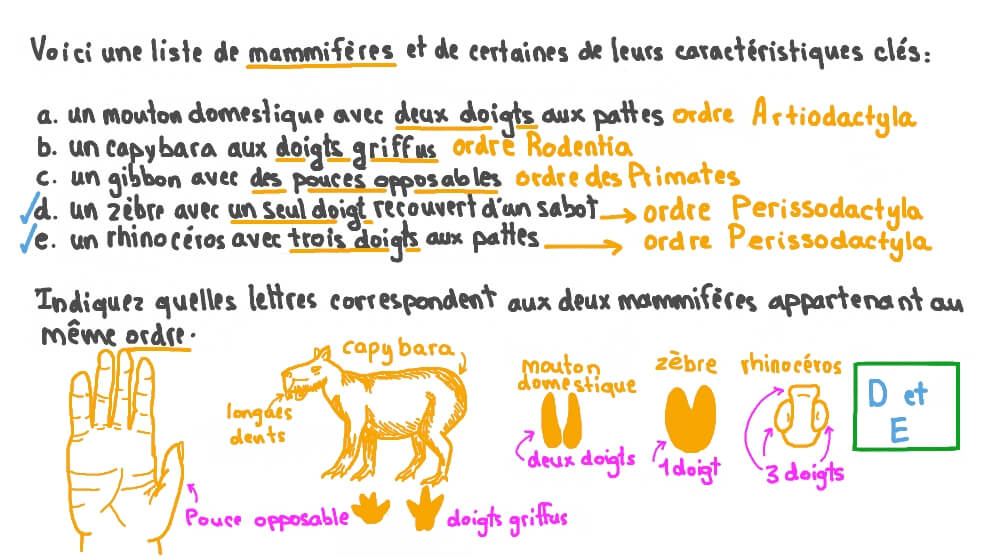 Voici une liste de mammifères et de certaines de leurs caractéristiques clés :
a. un mouton domestique avec deux doigts aux pattes ordre Artiodactyla
b. un capybara aux doigts griffus ordre Rodentia
c. un gibbon avec des pouces opposables ordre des Primates
d. un zèbre avec un seul doigt recouvert d'un sabot → ordre Perissodactyla
e. un rhinocéros avec trois doigts aux pattes → ordre Perissodactyla
Indiquez quelles lettres correspondent aux deux mammifères appartenant au
même ordre.
capybara
longues
dents
Pouce opposable
doigts griffus
mouton
domestique
deux doigts
zèbre
1 doigt
rhinocéros
3 doigts
D et
E